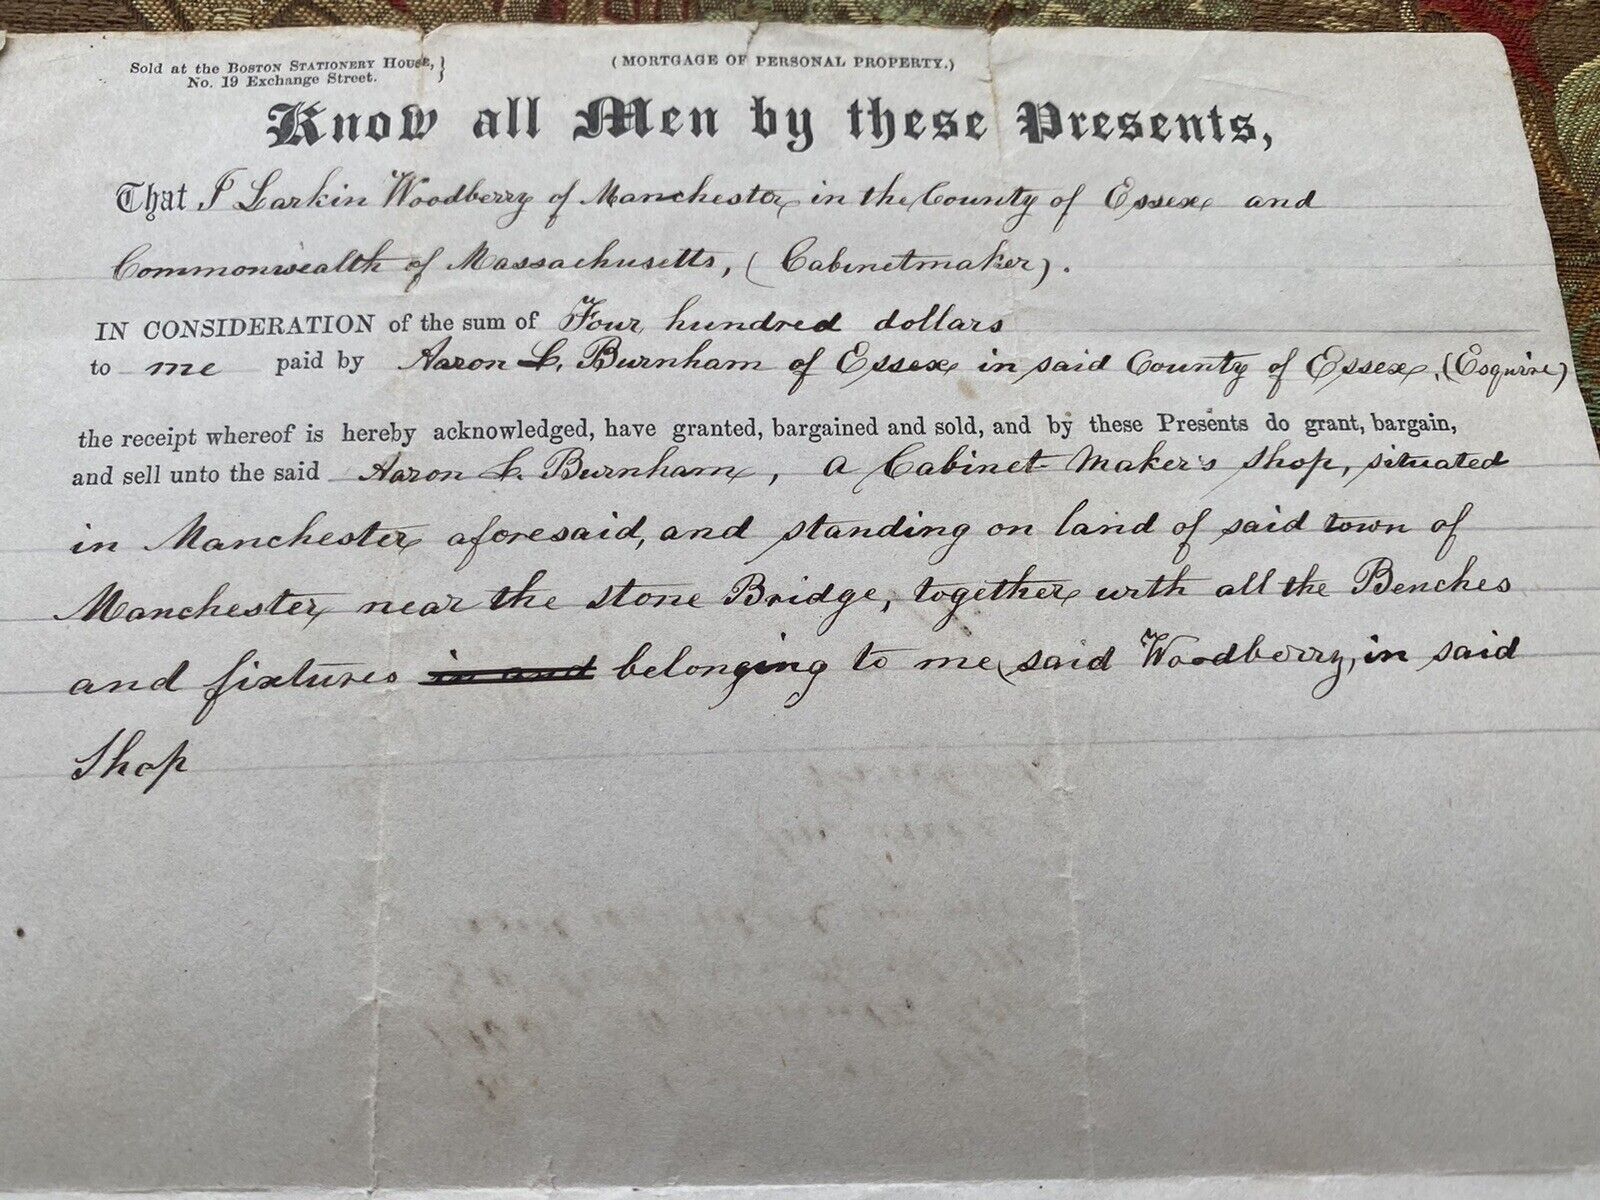 Sold at the BOSTON STATIONERY HOUSE, }
No. 19 Exchange Street.
(MORTGAGE OF PERSONAL PROPERTY.)
Know all Men by these Presents,
That I Larkin Woodberry of Manchester in the County of Essex and
Commonwealth of Massachusetts, (Cabinetmaker).
IN CONSIDERATION of the sum of Four hundred dollars
to me paid by Aaron L. Burnham of Essex in said County of Essex, (Esquire)
the receipt whereof is hereby acknowledged, have granted, bargained and sold, and by these Presents do grant, bargain,
and sell unto the said Aaron L. Burnham, a Cabinet-Maker's shop, situated
in Manchester aforesaid, and standing on land of said town of
Manchester near the stone Bridge, together with all the Benches
and fixtures in and belonging to me said Woodberry, in said
Shop